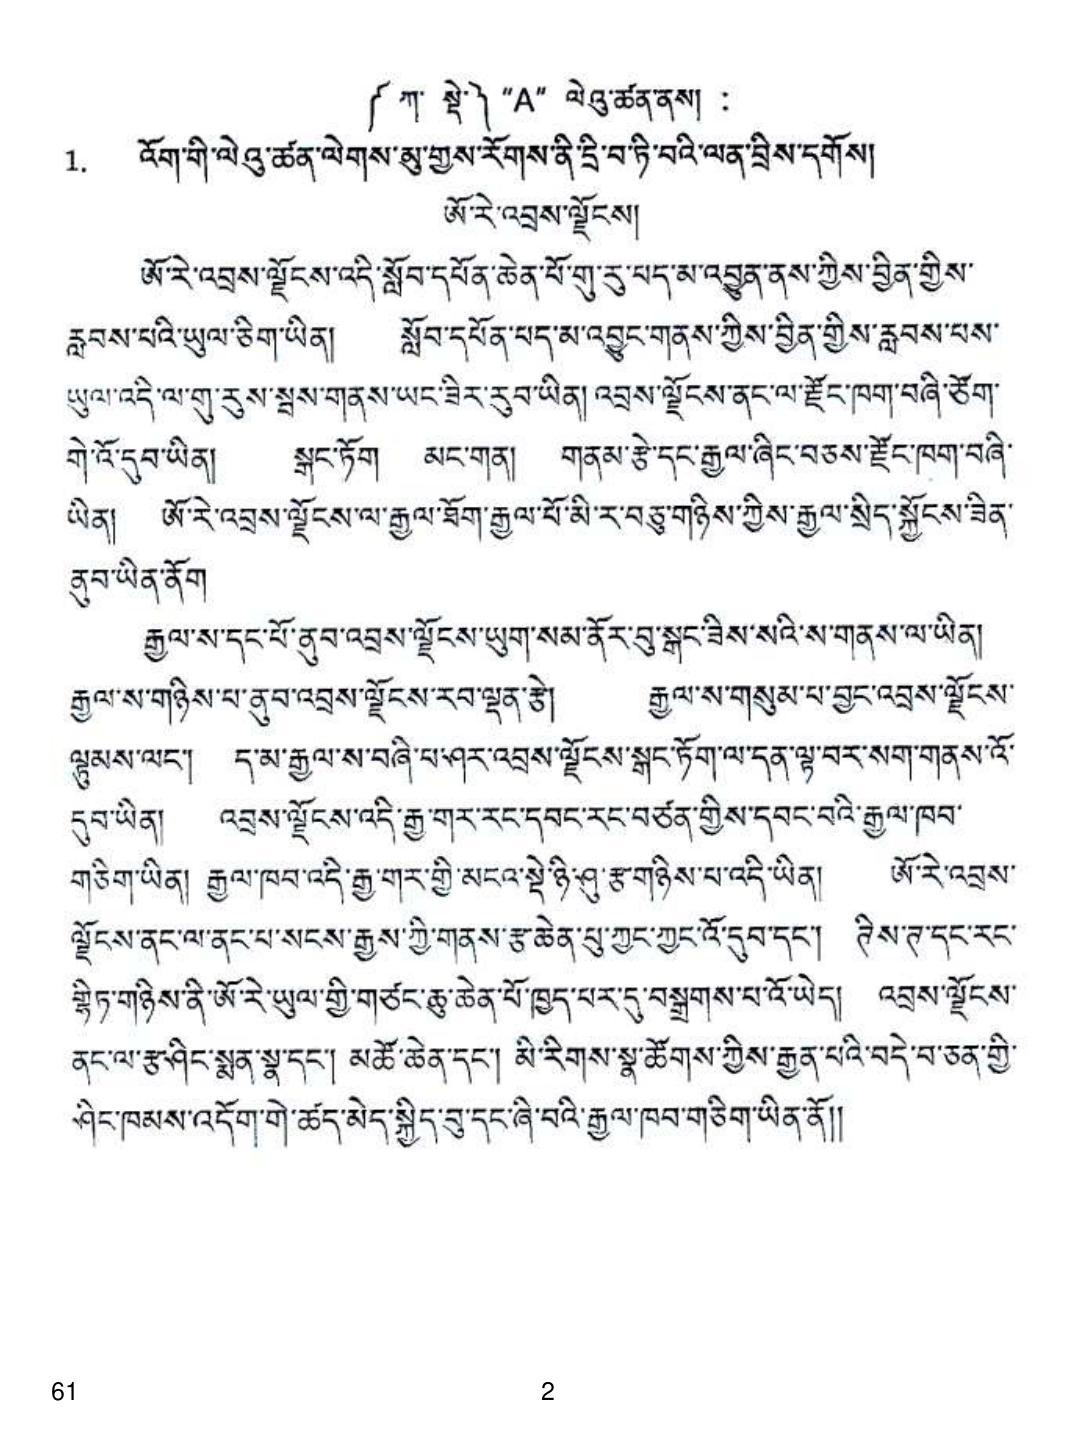 ༼ ཀ་ སྡེ་༽ “A” ལེའུ་ཚན་ནས། :
1. འོག་གི་ལེའུ་ཚན་ལེགས་མུ་གྱས་རོགས་ནི་དྲི་བ་ཏི་བའི་ལན་བྲིས་དགོས།
ཨོ་རེ་འབྲས་ལྗོངས།
ཨོ་རེ་འབྲས་ལྗོངས་འདི་སློབ་དཔོན་ཆེན་པོ་གུ་རུ་པད་མ་འབྱུན་ནས་ཀྱིས་བྱིན་གྱིས་
རླབས་པའི་ཡུལ་ཅིག་ཡིན། སློབ་དཔོན་པད་མ་འབྱུང་གནས་ཀྱིས་བྱིན་གྱིས་རླབས་པས་
ཡུལ་འདི་ལ་གུ་རུས་སྦས་གནས་ཡང་ཟེར་རུབ་ཡིན། འབྲས་ལྗོངས་ནང་ལ་རྫོང་ཁག་བཞི་ཅོག་
གེ་འོ་དུབ་ཡིན། སྒང་ཏོག མང་གན། གནམ་རྩེ་དང་རྒྱལ་ཞིང་བཅས་རྫོང་ཁག་བཞི་
ཡིན། ཨོ་རེ་འབྲས་ལྗོངས་ལ་རྒྱལ་ཐོག་རྒྱལ་པོ་མི་ར་བཅུ་གཉིས་ཀྱིས་རྒྱལ་སྲིད་སྐྱོངས་ཟིན་
ནུབ་ཡིན་ནོག
རྒྱལ་ས་དང་པོ་ནུབ་འབྲས་ལྗོངས་ཡུག་སམ་ནོར་བུ་སྒང་ཟེས་སའི་ས་གནས་ལ་ཡིན།
རྒྱལ་ས་གཉིས་པ་ནུབ་འབྲས་ལྗོངས་རབ་ལྡན་རྩེ། རྒྱལ་ས་གསུམ་པ་བྱང་འབྲས་ལྗོངས་
ལྷུམས་ལང་། ད་མ་རྒྱལ་ས་བཞི་པ་ཤར་འབྲས་ལྗོངས་སྒང་ཏོག་ལ་དན་ལྟ་བར་སག་གནས་འོ་
དུབ་ཡིན། འབྲས་ལྗོངས་འདི་རྒྱ་གར་རང་དབང་རང་བཙན་གྱིས་དབང་བའི་རྒྱལ་ཁབ་
གཅིག་ཡིན། རྒྱལ་ཁབ་འདི་རྒྱ་གར་གྱི་མངའ་སྡེ་ཉི་ཤུ་རྩ་གཉིས་པ་འདི་ཡིན། ཨོ་རེ་འབྲས་
ལྗོངས་ནང་ལ་ནང་པ་སངས་རྒྱས་ཀྱི་གནས་རྩ་ཆེན་པུ་ཀྱང་ཀྱང་འོ་དུབ་དང་། ཊིས་ཊ་དང་རང་
གྷིཏ་གཉིས་ནི་ཨོ་རེ་ཡུལ་གྱི་གཙང་ཆུ་ཆེན་པོ་ཁྱད་པར་དུ་བསྒྲགས་པ་འོ་ཡེད། འབྲས་ལྗོངས་
ནང་ལ་རྩ་ཤིང་སྨན་སྣ་དང་། མཚོ་ཆེན་དང་། མི་རིགས་སྣ་ཚོགས་ཀྱིས་རྒྱན་པའི་བདེ་བ་ཅན་གྱི་
ཤིང་ཁམས་འདོག་གེ་ཚད་མེད་སྐྱིད་བུ་དང་ཞི་བའི་རྒྱལ་ཁབ་གཅིག་ཡིན་ནོ།།
61 2